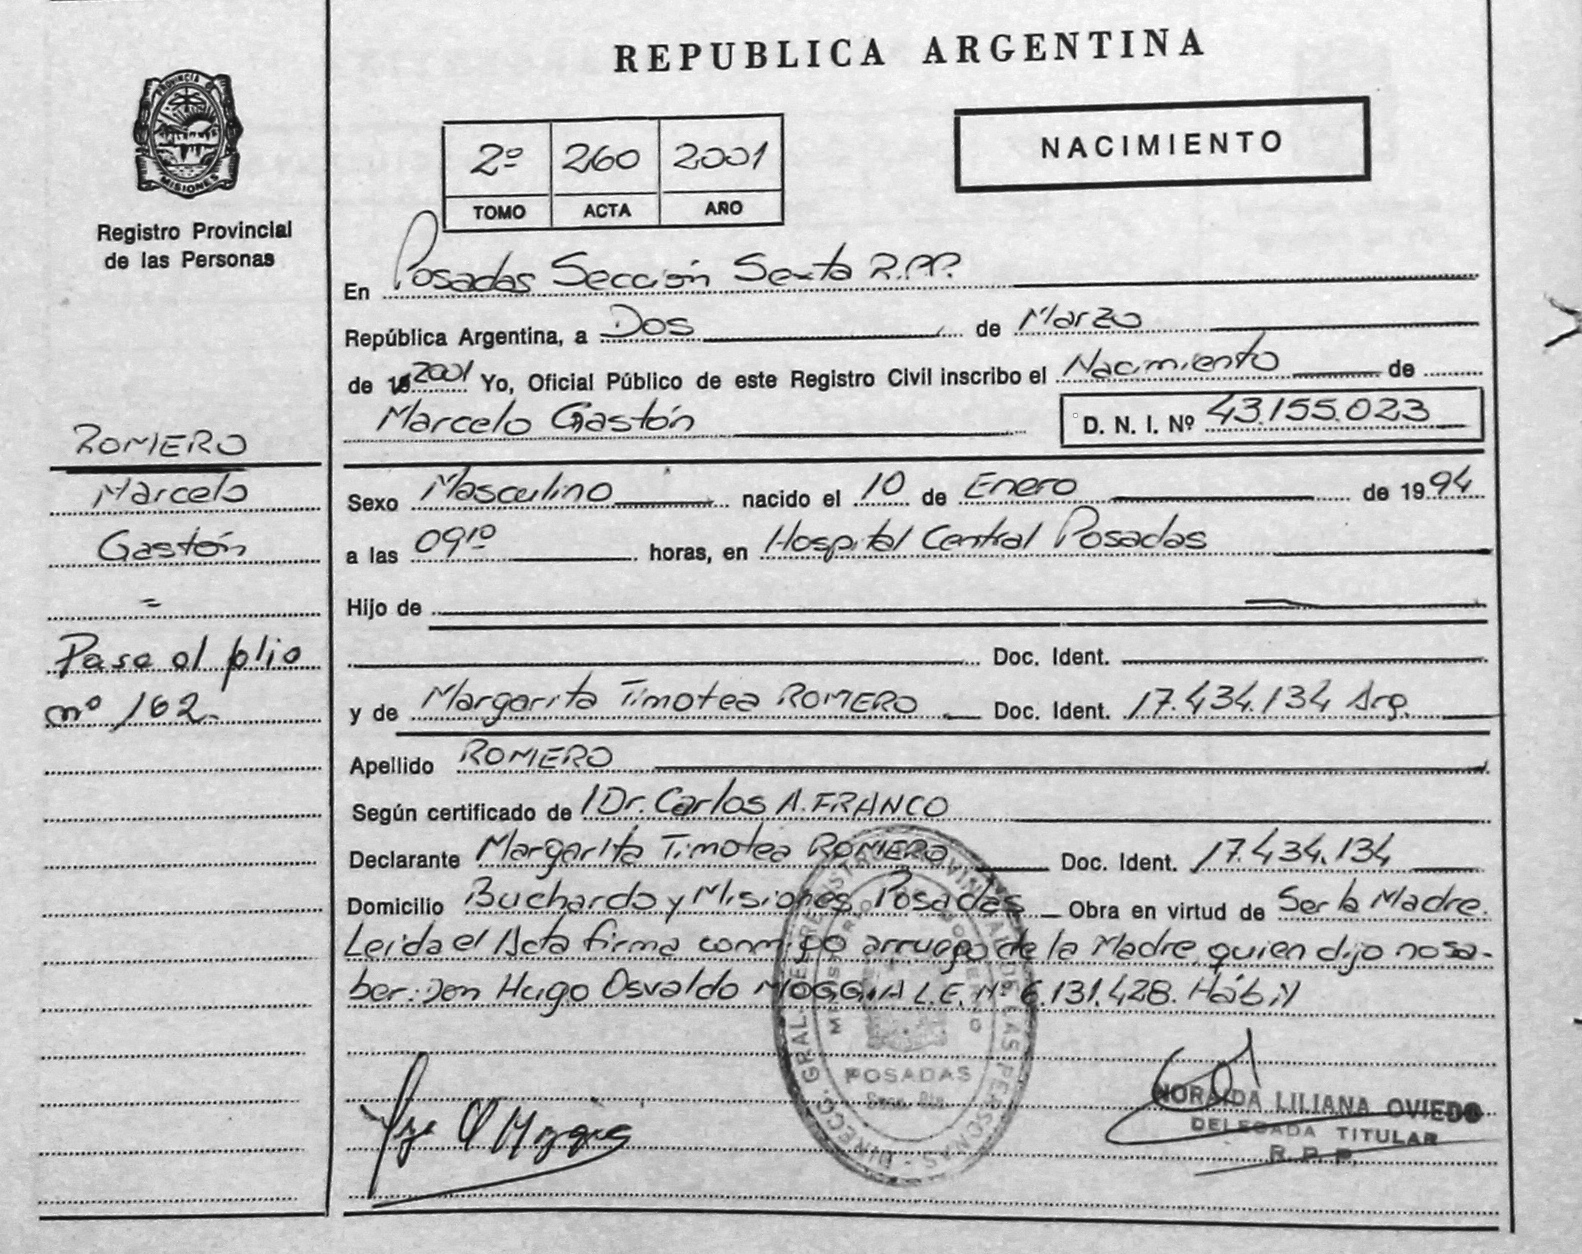 REPUBLICA ARGENTINA
PROVINCIA DE
MISIONES
Registro Provincial
de las Personas
2º 260 2001
TOMO ACTA AÑO
NACIMIENTO
En Posadas Sección Sexta R.P.P.
República Argentina, a Dos de Marzo
de 2001 Yo, Oficial Público de este Registro Civil inscribo el Nacimiento de
Marcelo Gastón D. N. I. Nº 43.155.023
ROMERO
Marcelo
Gastón
=
Pasa al folio
nº 162.
Sexo Masculino nacido el 10 de Enero de 1994
a las 09¹⁰ horas, en Hospital Central Posadas
Hijo de
Doc. Ident.
y de Margarita Timotea ROMERO Doc. Ident. 17.434.134 Arg.
Apellido ROMERO
Según certificado de Dr. Carlos A. FRANCO
Declarante Margarita Timotea ROMERO Doc. Ident. 17.434.134
Domicilio Buchardo y Misiones, Posadas Obra en virtud de Ser la Madre.
Leída el Acta firma conmigo a rruego de la Madre quien dijo no sa-
ber: Don Hugo Osvaldo MOGGIA L.E. Nº 6.131.428. Hábil
DIRECC. GRAL. DEL REGISTRO PROVINCIAL DE LAS PERSONAS
MINISTERIO DE GOBIERNO
POSADAS
NORAIDA LILIANA OVIEDO
DELEGADA TITULAR
R. P. P.